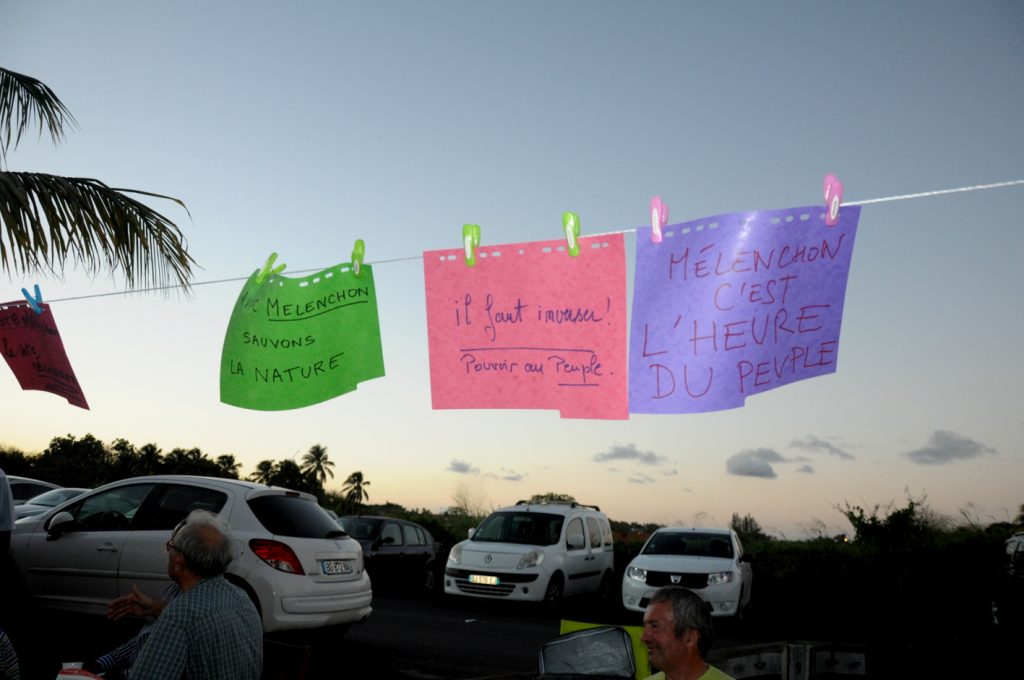 MELENCHON
SAUVONS
LA NATURE
il faut inverser!
Pouvoir au Peuple.
MÉLENCHON
C'EST
L'HEURE
DU PEUPLE